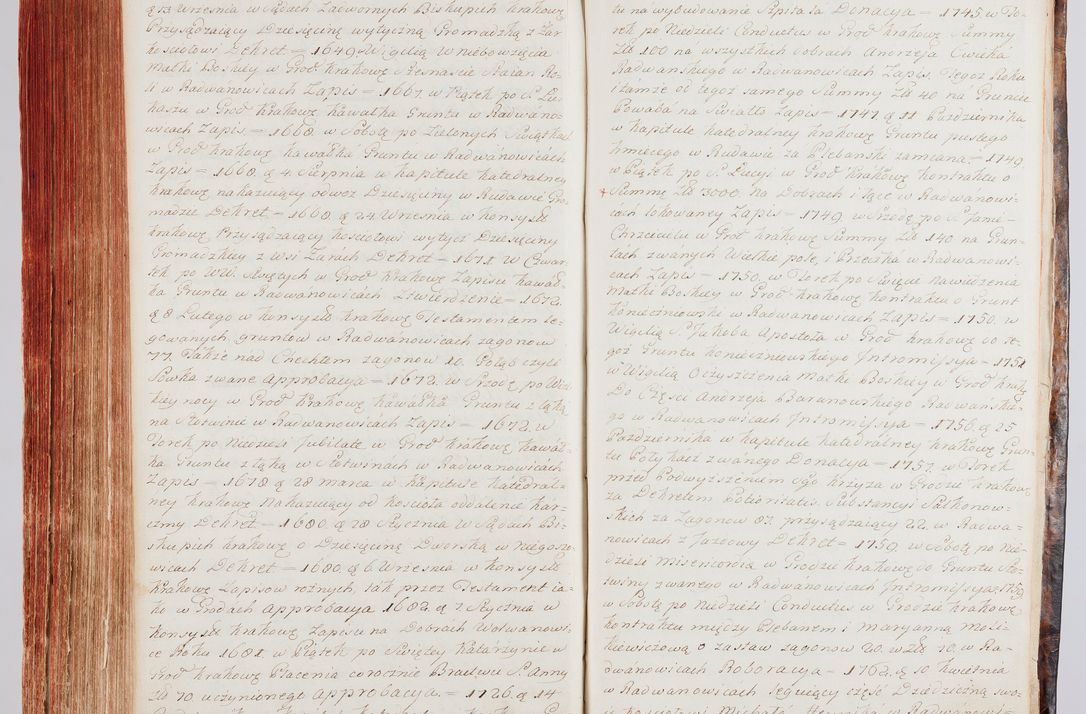 q 13 Września w Sądach Zadwornych Biskupich Krakowę
Przysądzaiący Dziesięcinę wytyczną Gromadzką z Zar
kosciołowi Dekret = 1649. w Wigilią Wniebowzięcia
Matki Boskiey w Grod Krakowę
li w Radwanowicach Zapis = 1667. w Piątek po S. Lu-
kaszu w Grod Krakowę Kawałka Gruntu w Radwáno-
wicach Zapis = 1668. w Sobotę po Zielonych Swiątkách
w Grod Krakowę Kawałká Gruntu w Radwánowicách
Zapis = 1668. q 4. Sierpnia w Kapitule Katedralney
Krakowę nakazuiący odwoz Dziesięciny w Rudawie Gro-
madzie Dekret = 1668. q 24 Września w Konsyst
Krakowę Przysądzaiący kosciołowi wytycz Dziesięciny
Gromadzkiey z Wsi Zarach Dekret = 1671. w Czwar-
tek po WW. Swiętych w Grod Krakowę Zapisu kawał-
ka Gruntu w Radwánowicách Ztwierdzenie = 1672.
q 8 Lutego w Konsyst Krakowę Testamentem le-
gowanych gruntów w Radwanowicach zagonow
77. Także nad Chechłem zagonow 10. Połąb czyli
Sowka zwane Approbacya = 1672. w Srodę po Wiel-
kieynocy w Grod Krakowę Kawałká Gruntu z łąką
na Słotwinie w Radwanowicach Zapis = 1672. w
Torek po Niedzieli Jubilate w Grod Krakowę kawał-
ka Gruntu z łąką w Słotwinách w Radwanowicach
Zapis = 1678 q 28 marca w Kapitule Katedral-
ney Krakowę Nakazuiący od kościoła oddalenie kar-
czmy Dekret = 1680. q 28 Stycznia w Sądach Bi-
skupich Krakowę o Dziesięcinę Dworską w Niegoszo-
wicach Dekret = 1680. q 6 Września w Konsyst
Krakowę Zapisow rożnych, tak przez Testament ia-
ko w Grodach Approbacya 1682. q 7 Stycznia w
Konsyst Krakowę Zapisu na Dobrách Wolwanowi-
ce Roku 1681 w Piątek po Swiętey Katarzynie w
Grod Krakowę Płacenia corocznie Bractwu S. Anny
za 70 uczynionego Approbacya. = 1726. q 14

tu na wybudowanie Szpitala Donacya = 1745. w To-
rek po Niedzieli Conductus w Grod Krakowę Summy
Zlt 100 na wszystkich dobrach Andrzeja Cwieka
Radwanskiego w Radwanowicach Zapis. Tegoż Roku
i tamże od tegoż samego Summy Zlt 40 ná Gruncie
Powaba na Swiatło Zapis = 1747. q 11 Pazdziernika
w Kapitule Katedralney Krakowę Gruntu pustego
Kmiecego w Rudawie za Plebanski zamiana = 1749
w Piątek po S. Łucyi w Grod Krakowę Kontraktu o
+ Summę Zlt 3000. na Dobrach i łące w Radwanowi-
cách lokowaney Zapis = 1749. w Srodę po S. Janie
Chrzcicielu w Grod Krakowę Summy Zlt 140 na Grun-
tach zwanych Wielkie pole, i Brzezka w Radwanowi-
cach Zapis = 1750. w Torek po Swięcie Nawidzenia
Matki Boskiey w Grod Krakowę Kontraktu o Grunt
Konieczniowski w Radwanowicach Zapis = 1750. w
Wigilią S. Jakoba Apostoła w Grod Krakowę do te-
goż Gruntu Koniecznowskiego Intromissya = 1751
w Wigilią Oczyszczenia Matki Boskiey w Grod Krakę
Do Części Andrzeja Baranowskiego Radwánskie-
go w Radwanowicach Intromissya = 1756. q 25
Pazdziernika w Kapitule Katedralney Krakowę Grun-
tu zwánego Donacya = 1757. w Torek
przed Podwyższeniem Sgo Krzyża w Grodzie Krakowę
za Dekretem Potioritatis Substancyi Salkonow-
skich za Zagonow 87. przysądzaiący 22. w Radwa-
nowicach z Jazdowy Dekret = 1759. w Sobotę po Nie-
dzieli Misericordia w Grodzie Krakowę do Gruntu Sło-
twiny zwanego w Radwánowicach Intromissya. 1759
w Sobotę po Niedzieli Conductus w Grodzie Krakowę
Kontraktu między Plebanem i Maryanną Moli-
kiewiczową o zastaw zagonow 20. w Zlt 70. w Ra-
dwánowicach Roboracya = 1762. q 10 Kwietnia
w Radwanowicach leguiący część Dziedziczną swo-